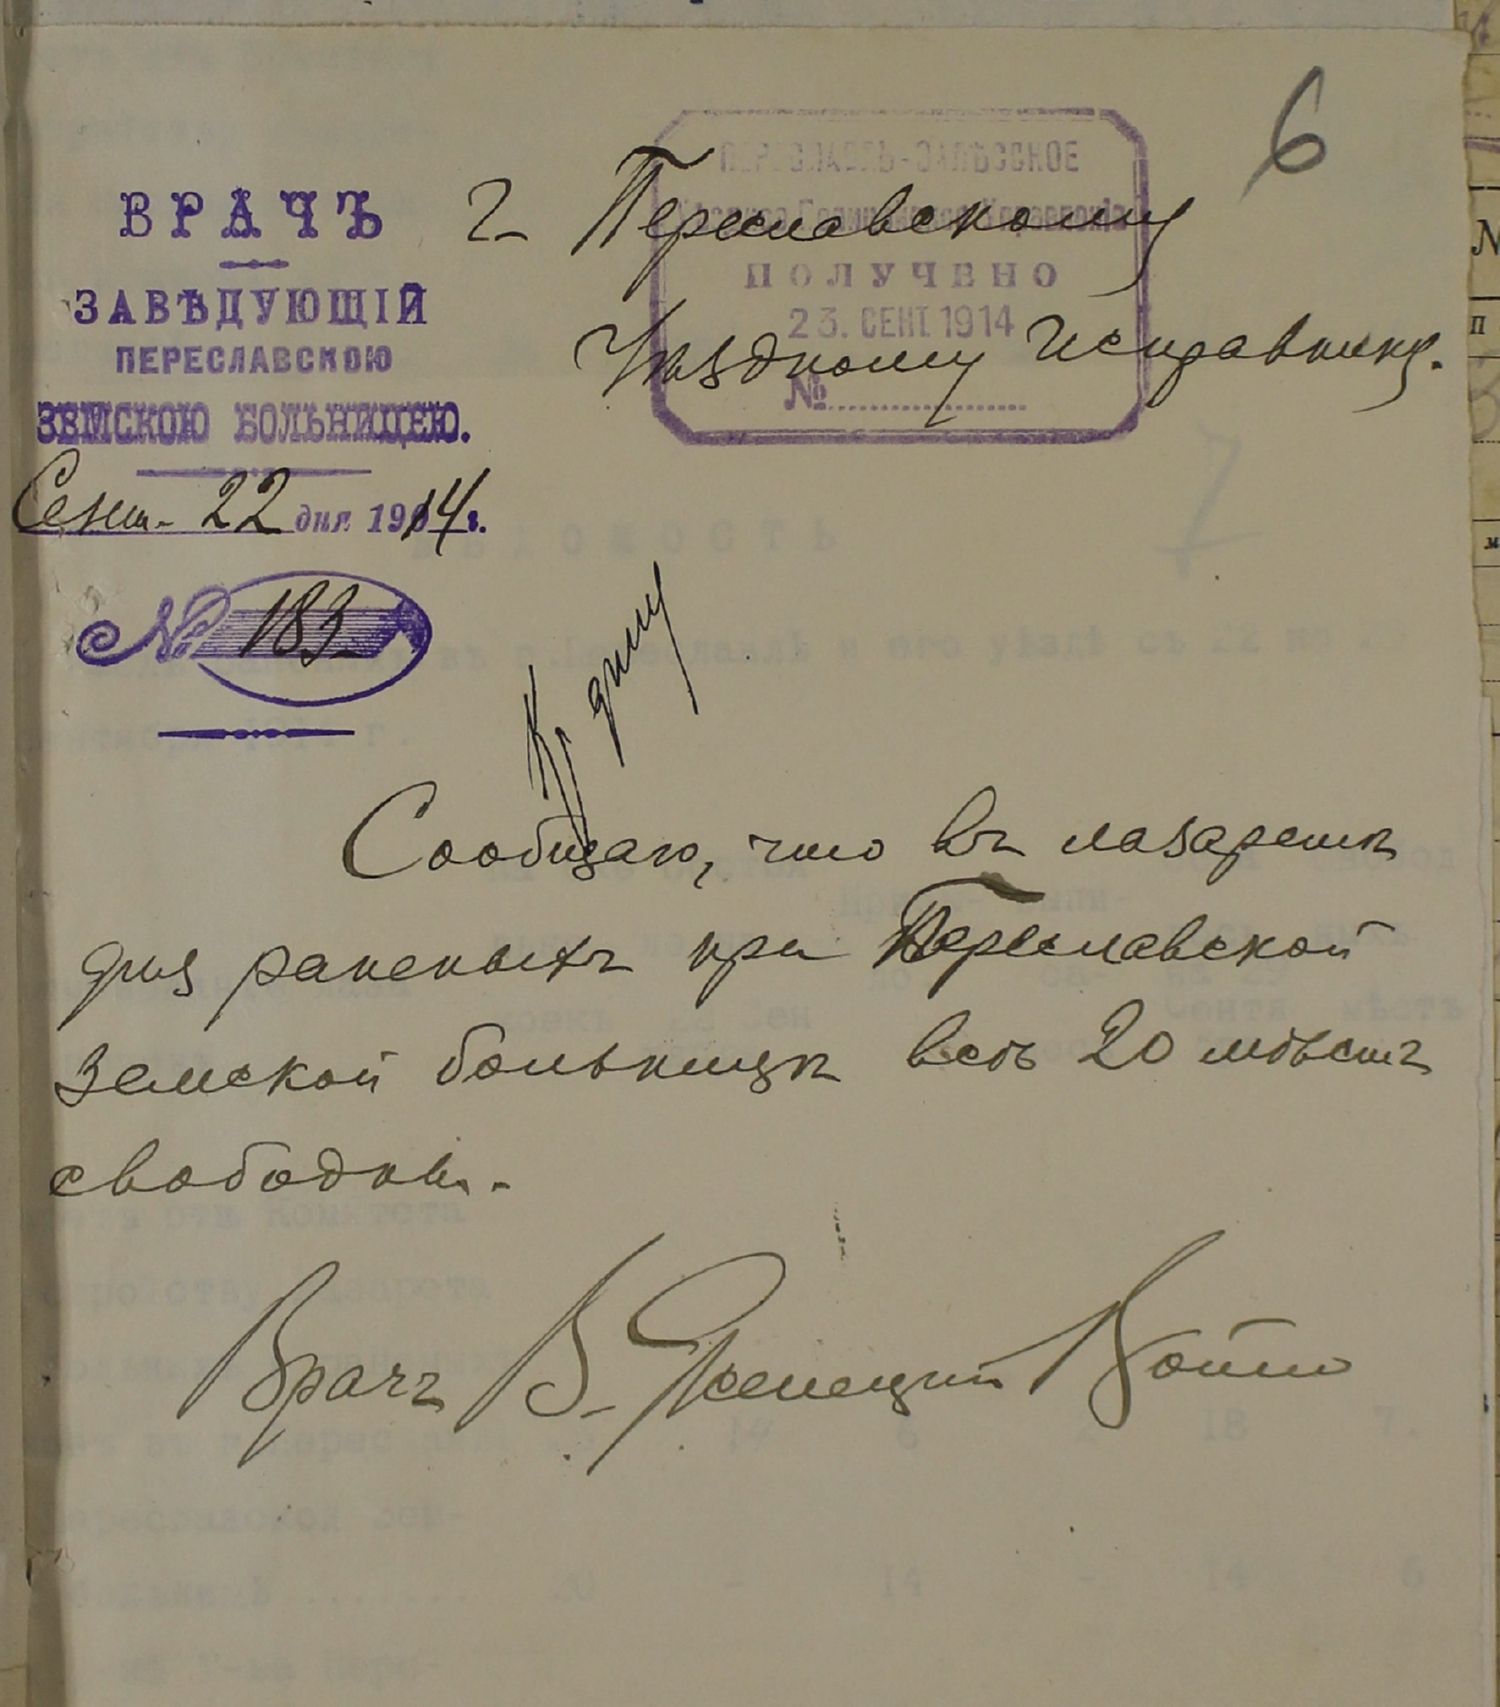 6
ВРАЧЪ
ЗАВѢДУЮЩІЙ
ПЕРЕСЛАВСКОЮ
ЗЕМСКОЮ БОЛЬНИЦЕЮ.
Сент. 22 дня 1914 г.
№ 183
ПЕРЕСЛАВЛЬ-ЗАЛѢССКОЕ
Уѣздное Полицейское Управленіе
ПОЛУЧЕНО
23. СЕНТ. 1914
№
Г. Переславскому
Уѣздному Исправнику.
7
Къ дѣлу
Сообщаю, что въ лазаретѣ
для раненыхъ при Переславской
Земской больницѣ всѣ 20 мѣстъ
свободны.
Врачъ В. Ясенецкій Войно